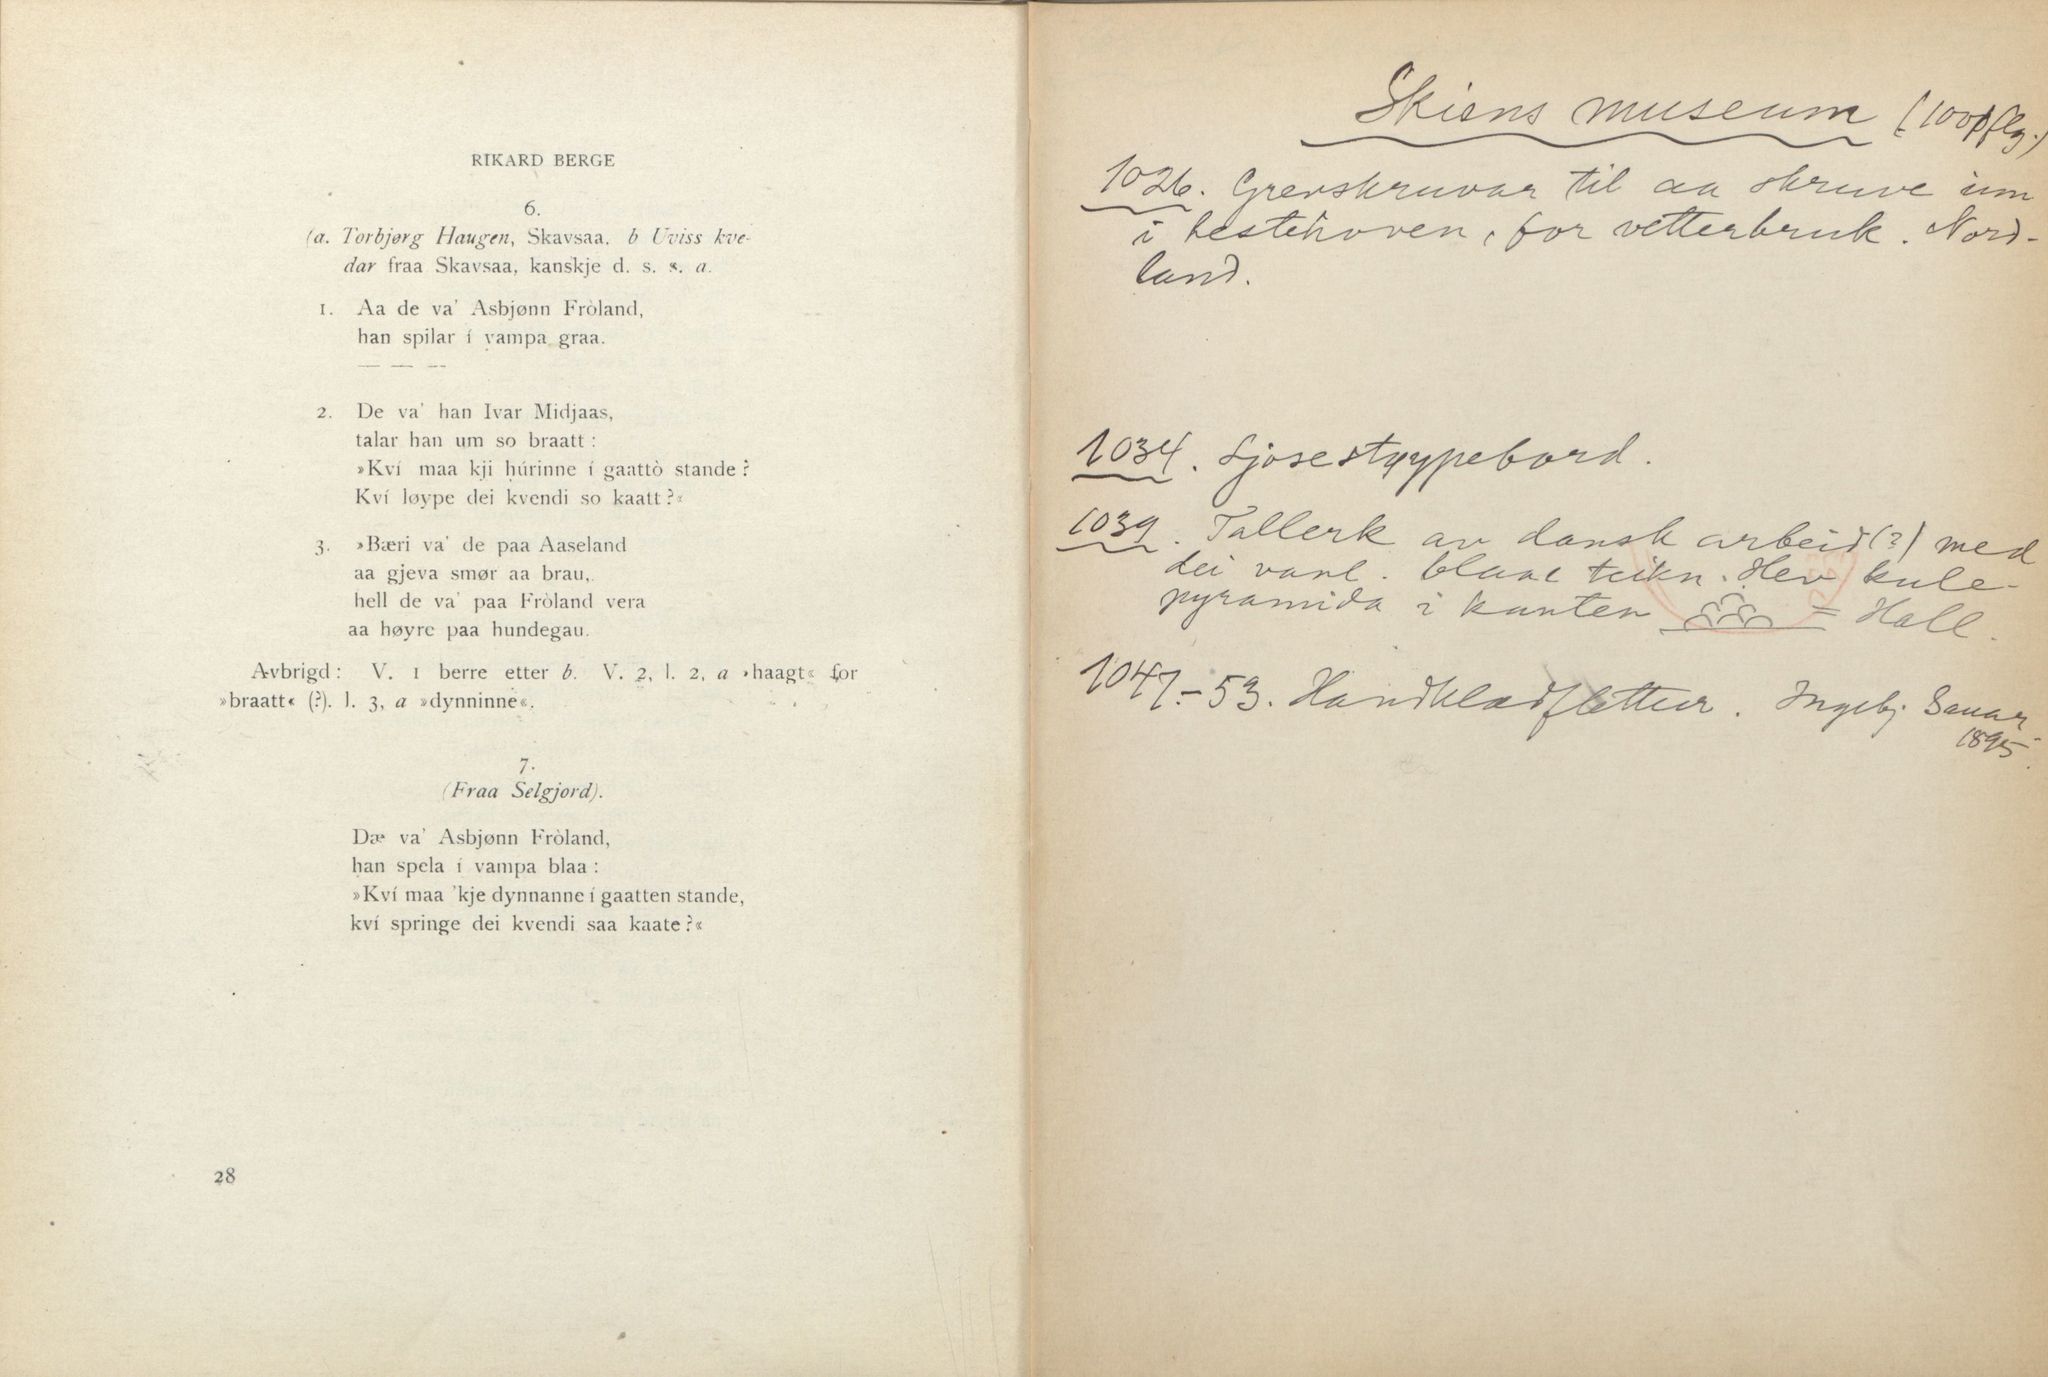 RIKARD BERGE
6.
(a. Torbjørg Haugen, Skavsaa. b Uviss kve-
dar fraa Skavsaa, kanskje d. s. s. a.
1. Aa de va' Asbjønn Fròland,
han spilar í vampa graa.
— — —
2. De va' han Ivar Midjaas,
talar han um so braatt:
»Kví maa kji húrinne í gaattò stande?
Kví løype dei kvendi so kaatt?«
3. »Bæri va' de paa Aaseland
aa gjeva smør aa brau,
hell de va' paa Fròland vera
aa høyre paa hundegau.
Avbrigd: V. 1 berre etter b. V. 2, l. 2, a »haagt« for
»braatt« (?). l. 3, a »dynninne«.
7.
(Fraa Selgjord).
Dæ va' Asbjønn Fròland,
han spela í vampa blaa:
»Kví maa 'kje dynnanne í gaatten stande,
kví springe dei kvendi saa kaate?«
28
Skiens museum
1026. Grevskruvar til aa skruve inn
i hestehoven, for vetterbruk. Nord-
land.
1034. Ljosestøypebord.
1039. Tallerk av dansk arbeid(?) med
dei vanl. blaae teikn. Hev kule-
pyramida i kanten = Hall.
1047.-53. Handklædflettur. Ingebj. Sauar
1895.